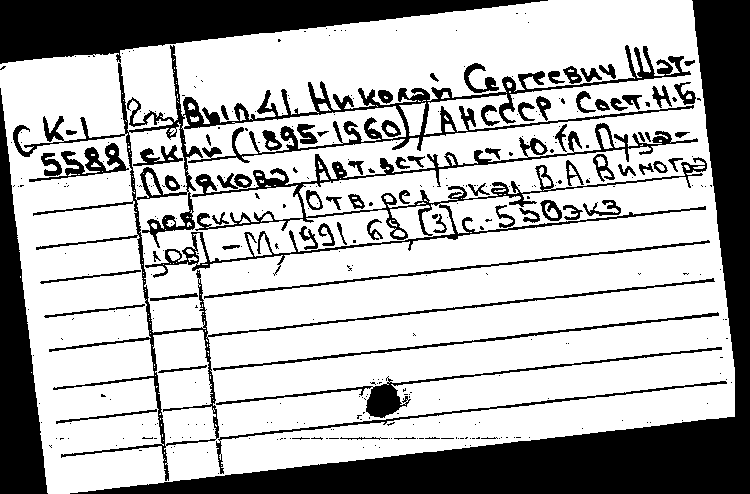 С К-1 2 экз Вып.41. Николай Сергеевич Шат-
5588 ский (1895-1960) / АНСССР. Сост. Н.Б.
Полякова. Авт. вступ. ст. Ю.М. Пуща-
ровский. [Отв. ред. акад. В.А. Виногра
дов]. - М., 1991. 68, [3] с. - 550 экз.